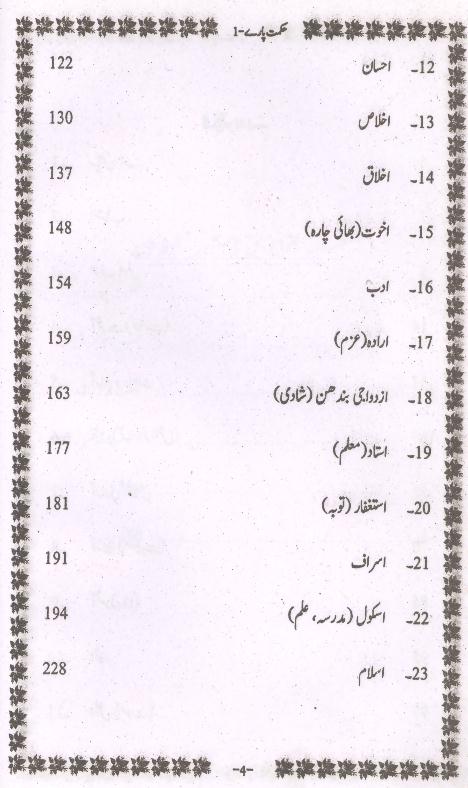 حکمت پارے-1
12۔ احسان 122
13۔ اخلاص 130
14۔ اخلاق 137
15۔ اخوت(بھائی چارہ) 148
16۔ ادب 154
17۔ ارادہ(عزم) 159
18۔ ازدواجی بندھن (شادی) 163
19۔ استاد(معلم) 177
20۔ استغفار (توبہ) 181
21۔ اسراف 191
22۔ اسکول (مدرسہ، علم) 194
23۔ اسلام 228
-4-